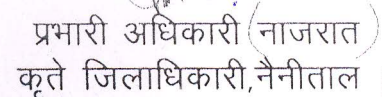 प्रभारी अधिकारी (नाजरात
कृते जिलाधिकारी,नैनीताल